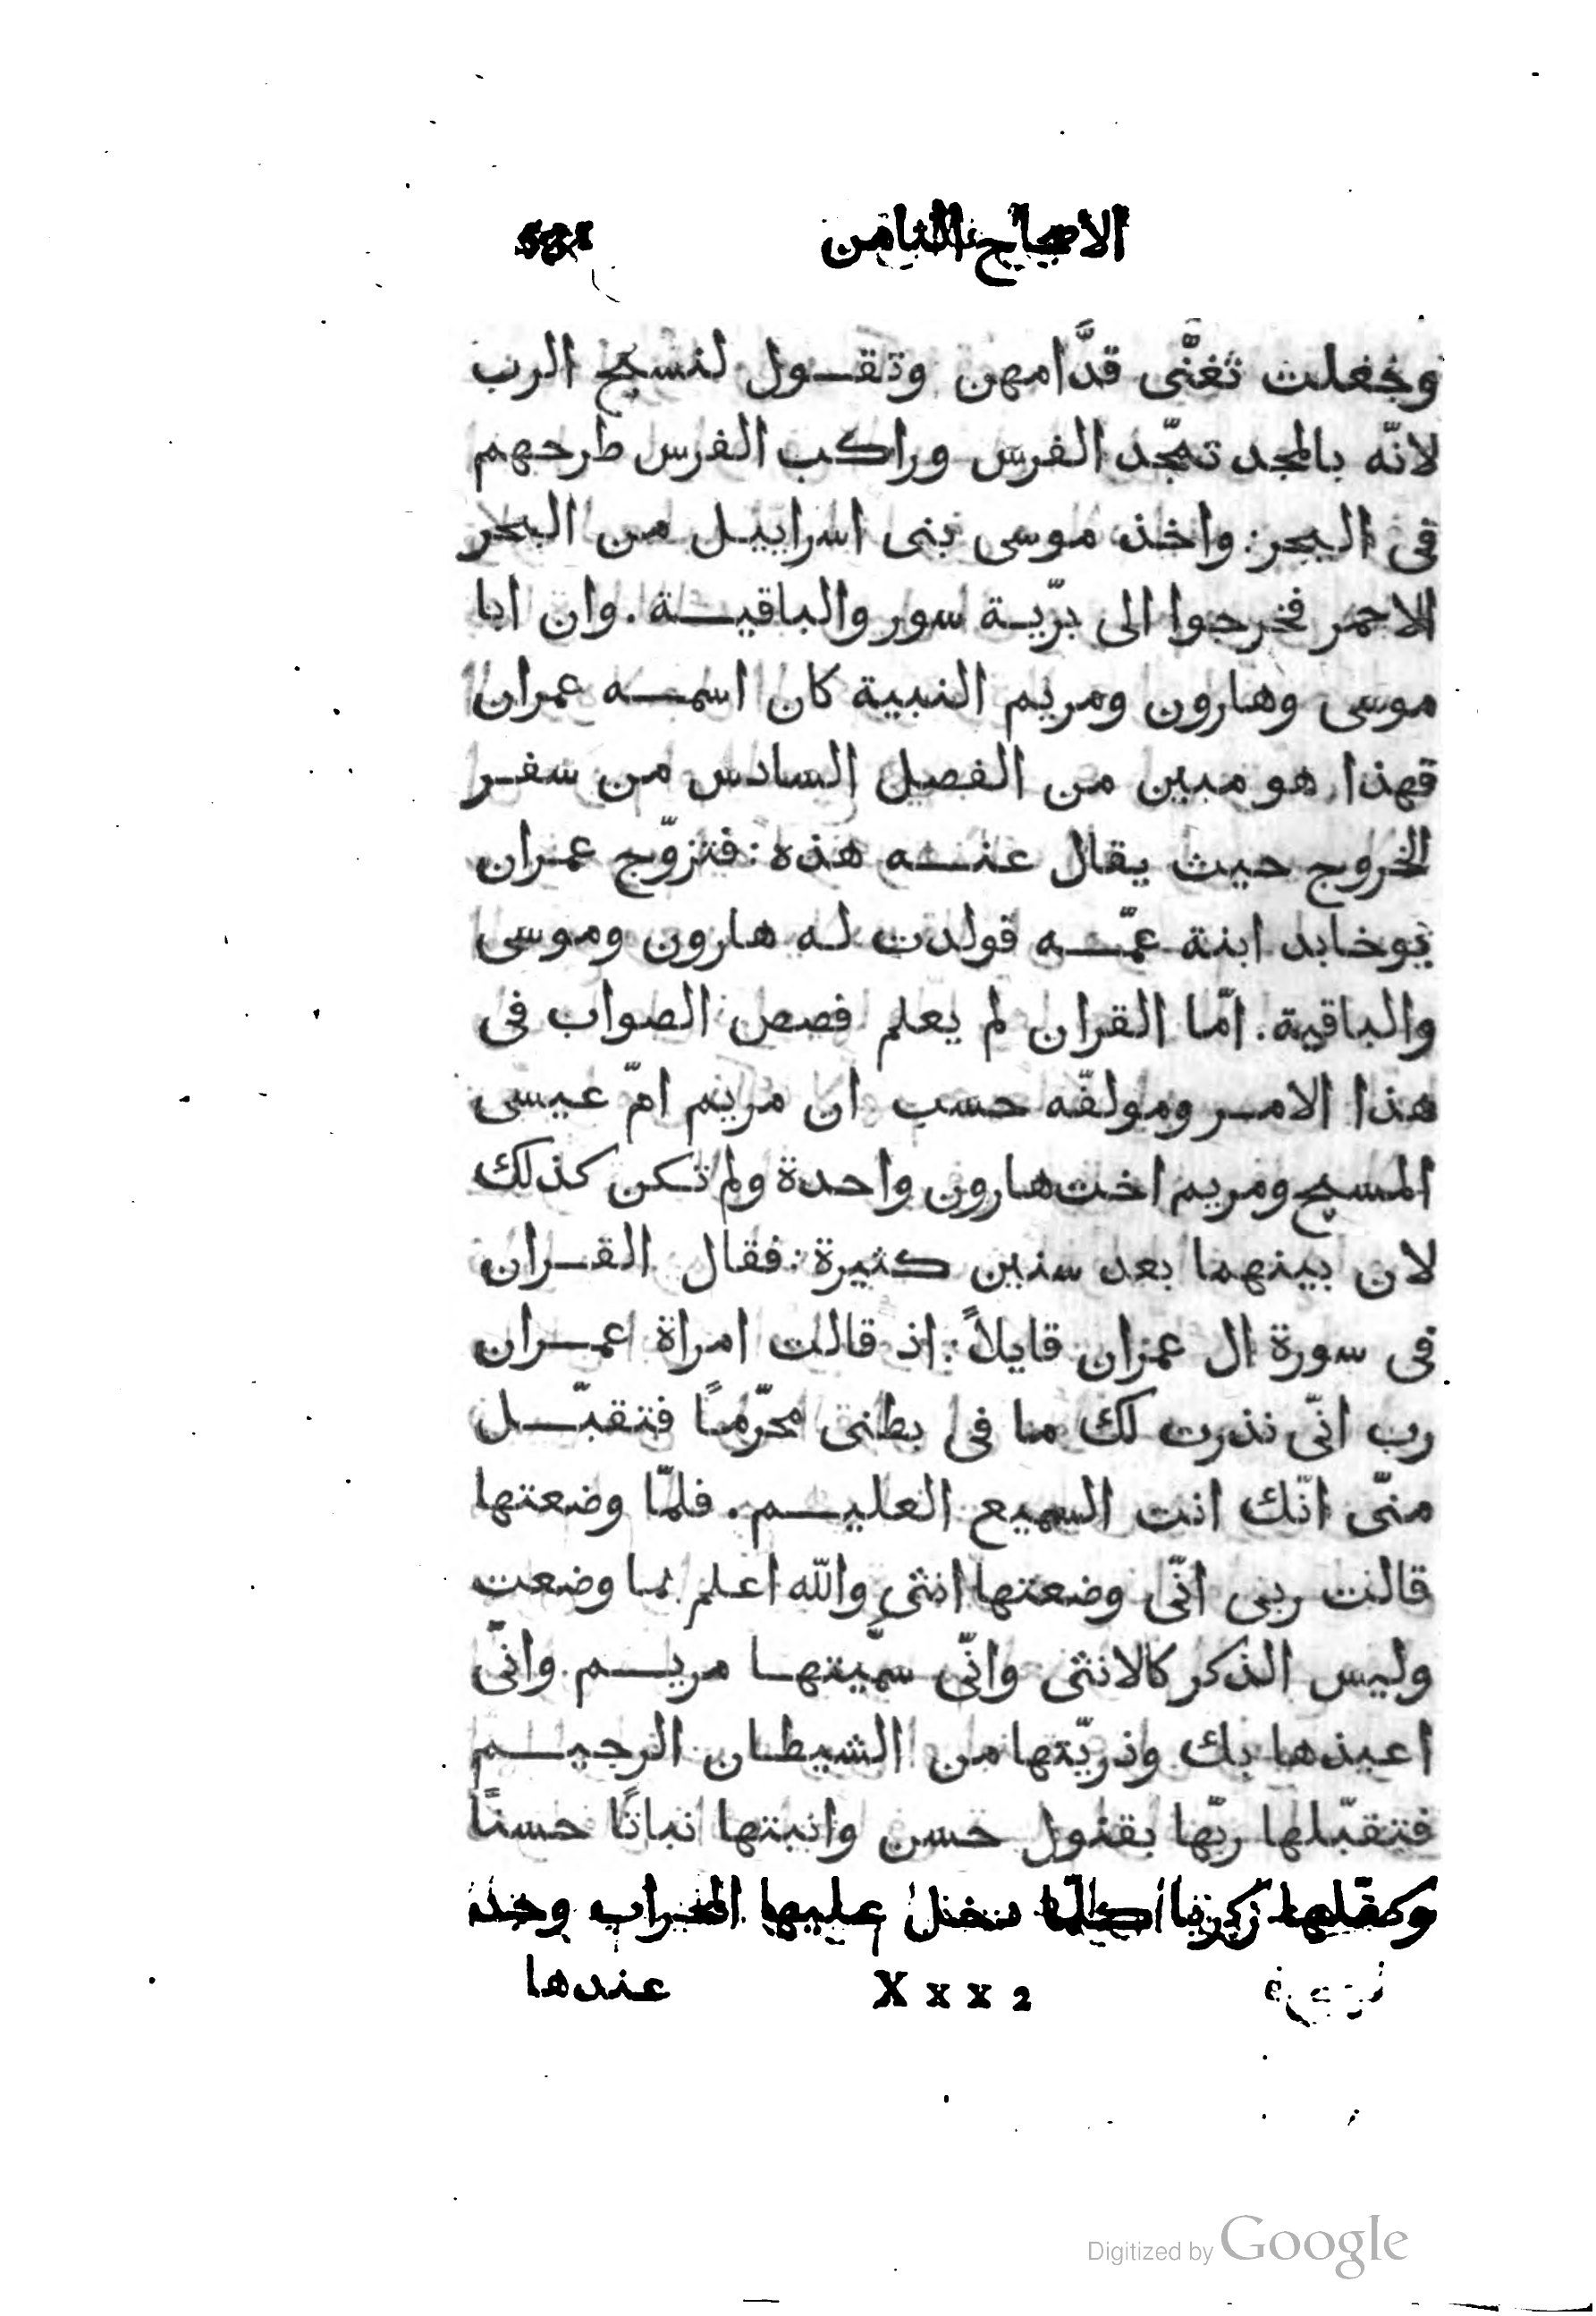 الاصحاح الثامن
وجعلت تغنّى قدَّامهن وتقول لنسبح الرب
لانّه بالمجد تمجّد الفرس وراكب الفرس طرحهم
فى البحر: واخذ موسى بنى اسراييل من البحر
الاحمر فخرجوا الى برّية سور والباقية. وان ابا
موسى وهارون ومريم النبية كان اسمه عمران
فهذا هو مبين من الفصل السادس من سفر
الخروج حيث يقال عنه هذه: فتزوّج عمران
يوخابد ابنة عمّه فولدت له هارون وموسى
والباقية. امّا القران لم يعلم فصص الصواب فى
هذا الامر ومولفّه حسب ان مريم امّ عيسى
المسيح ومريم اخت هارون واحدة ولم تكن كذلك
لان بينهما بعد سنين كثيرة: فقال القران
فى سورة ال عمران قايلاً: اذ قالت امراة عمران
رب انّى نذرت لك ما فى بطنى محرّمًا فتقبّل
منّى انّك انت السميع العليم. فلمّا وضعتها
قالت ربى انّى وضعتها انثى والله اعلم بما وضعت
وليس الذكر كالانثى وانّى سمّيتها مريم وانّى
اعيذها بك وذريّتها من الشيطان الرجيم
فتقبّلها ربّها بقبول حسن وانبتها نباتًا حسنًا
وكفّلها زكريا كلّما دخل عليها المحراب وجد
عندها
X x x 2
Digitized by Google